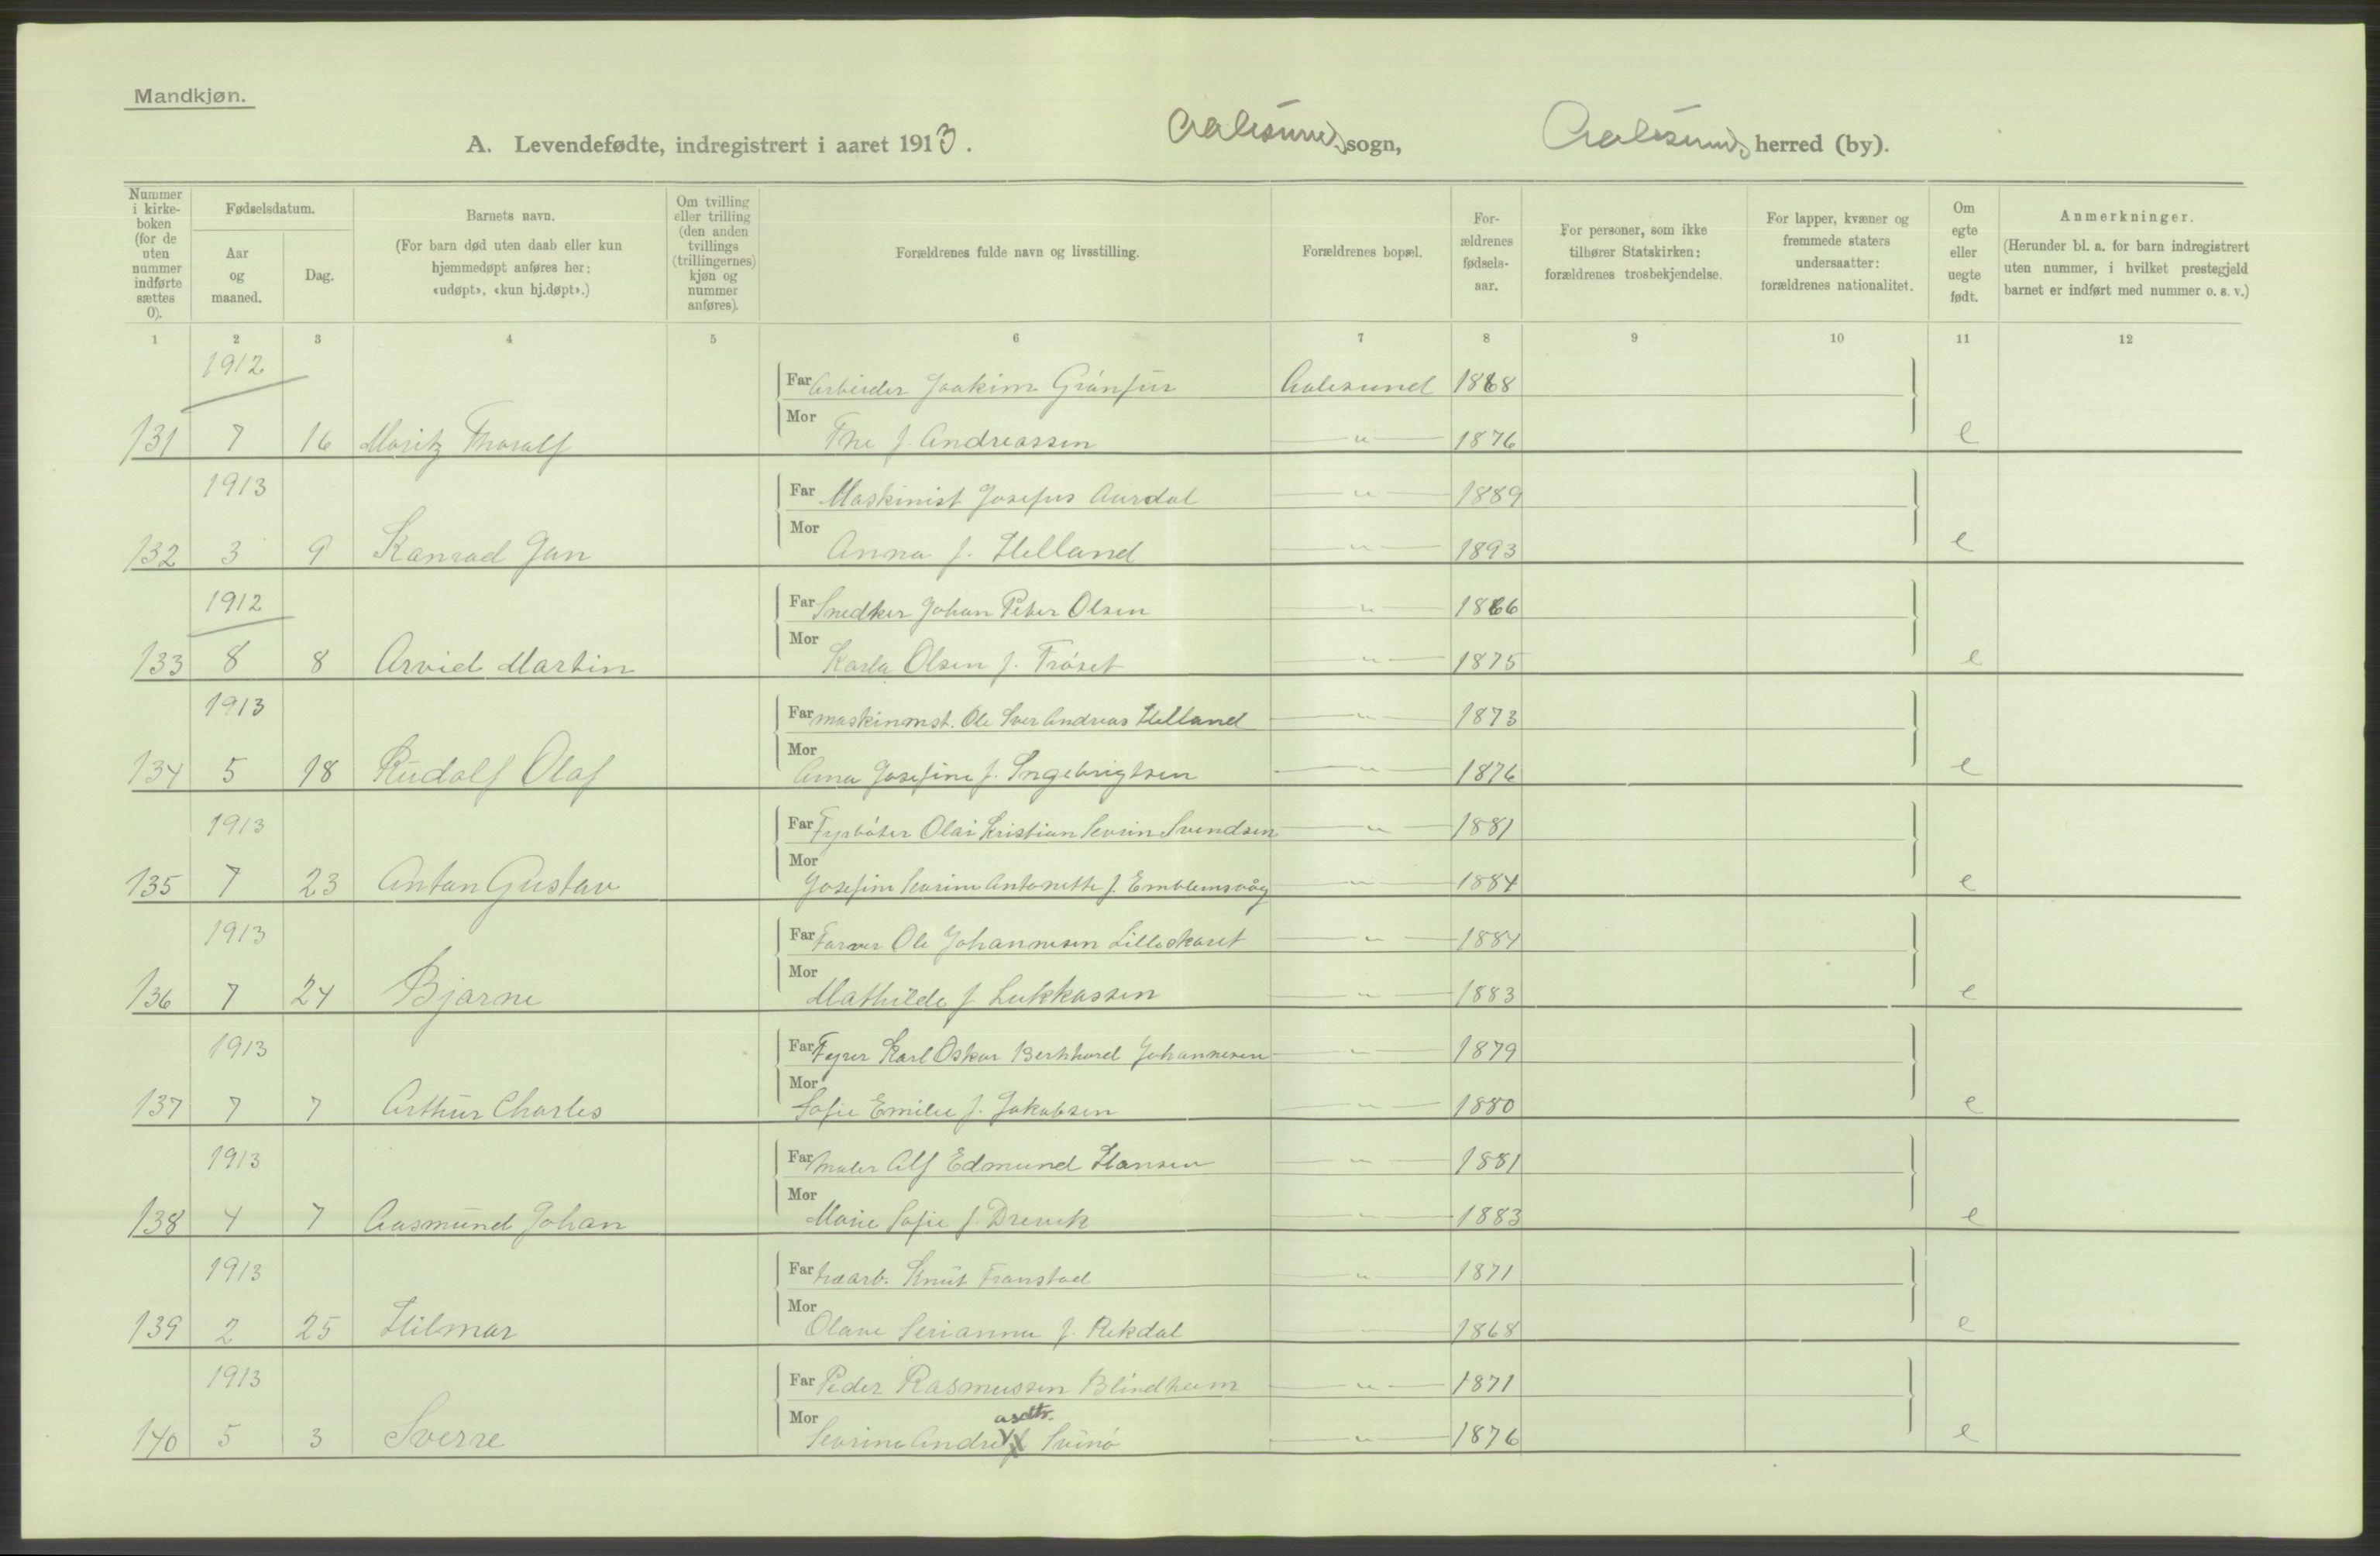 Mandkjøn.
A. Levendefødte, indregistrert i aaret 1913. Aalesund sogn, Aalesund herred (by).
Nummer i kirke-boken (for de uten nummer indførte sættes 0).
Fødselsdatum.
Aar og maaned.
Dag.
Barnets navn.
(For barn død uten daab eller kun hjemmedøpt anføres her: «udøpt», «kun hj.døpt».)
Om tvilling eller trilling (den anden tvillings (trillingernes) kjøn og nummer anføres).
Forældrenes fulde navn og livsstilling.
Forældrenes bopæl.
For-ældrenes fødsels-aar.
For personer, som ikke tilhører Statskirken: forældrenes trosbekjendelse.
For lapper, kvæner og fremmede staters undersaatter: forældrenes nationalitet.
Om egte eller uegte født.
Anmerkninger.
(Herunder bl. a. for barn indregistrert uten nummer, i hvilket prestegjeld barnet er indført med nummer o. s. v.)
1 2 3 4 5 6 7 8 9 10 11 12
1912
Far Arbeider Joakim Grónfur Aalesund 1868
131 7 16 Moritz Thoralf Mor Ine f. Andreassen — " — 1876 e
1913
Far Maskinist Josefus Aurdal — " — 1889
132 3 9 Konrad Jan Mor Anna f. Helland — " — 1893 e
1912
Far Snedker Johan Peter Olsen — " — 1866
133 8 8 Arvid Martin Mor Karla Olsen f. Fróset — " — 1875 e
1913
Far maskinmst. Ole Iver Andreas Helland — " — 1873
134 5 18 Rudolf Olaf Mor Anna Josefine f. Ingebrigtsen — " — 1876 e
1913
Far Fyrbóter Olai Kristian Sevrin Svendsen — " — 1881
135 7 23 Anton Gustav Mor Josefine Sevrine Antonette f Emblemsvåg — " — 1884 e
1913
Far Farver Ole Johannesen Lilleskaret — " — 1884
136 7 24 Bjarne Mor Mathilde f Lukkassen — " — 1883 e
1913
Far Fyrer Karl Oskar Bernhard Johannesen — " — 1879
137 7 7 Arthur Charles Mor Sofie Emilie f. Jakobsen — " — 1880 e
1913
Far Maler Alf Edmund Hansen — " — 1881
138 4 7 Aasmund Johan Mor Marie Sofie f. Drevik — " — 1883 e
1913
Far Knut Franstad — " — 1871
139 2 25 Hilmar Mor Olave Serianna f. Rekdal — " — 1868 e
1913
Far Peder Rasmussen Blindheim — " — 1871
asdtr.
140 5 3 Sverre Mor Sevrine Andre f Svinó — " — 1876 e